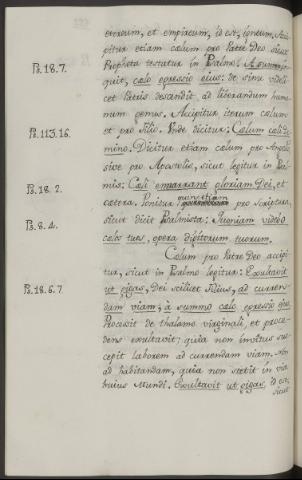 ethereum, et empireum, id est, igneum. Acci-
pitur etiam cœlum pro Patre Deo sicut
Propheta testatur in Psalmo: A summo, in-
Ps. 18. 7.
quit, cœlo egressio ejus: de sinu videli-
cet Patris descendit, ad liberandum huma-
num genus. Accipitur iterum cœlum
Ps. 113. 16.
et pro Filio. Unde dicitur: Cœlum cœli Do-
mino. Dicitur etiam cœlum pro Angelis
sive pro Apostolis, sicut legitur in Psal-
Ps. 18. 2.
mis: Cœli enarrant gloriam Dei, et
cætera. Ponitur pro Scriptura,
Ps. 8. 4.
sicut dicit Psalmista: Quoniam videbo
cœlos tuos, opera digitorum tuorum.
Cœlum pro Patre Deo accipi-
tur, sicut in Psalmo legitur: Exultavit
Ps. 18. 6. 7.
ut gigas, Dei scilicet Filius, ad curren-
dam viam; à summo cœlo egressio ejus.
Processit de thalamo virginali, et proce-
dens exultavit; quia non invitus sus-
cepit laborem ad currendam viam. Non
ad habitandam, quia non stetit in via
hujus Mundi. Exultavit ut gigas, id est,
sicut